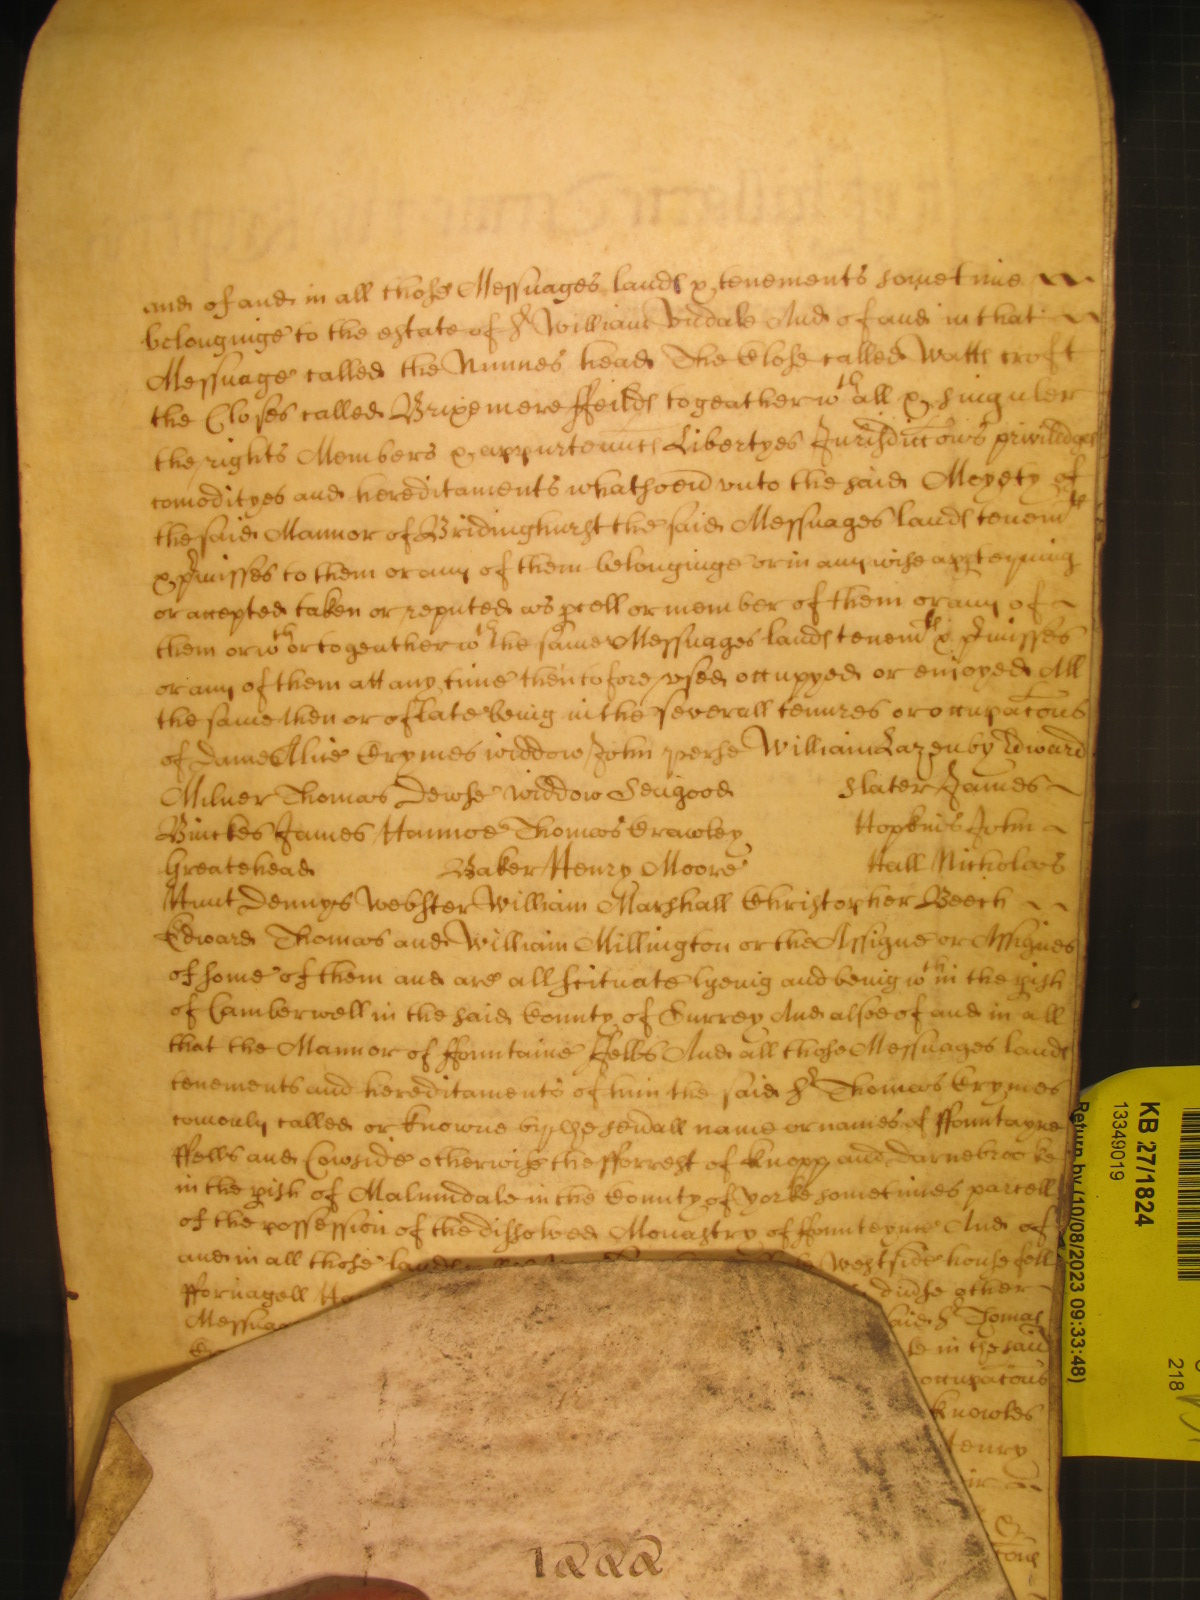 and of and in all those Messuages lands & tenements sometime
belonginge to the estate of Sr William Vvdale And of and in that
Messuage called the Nunnes head The Close called Watts croft
the Closes called Brixemere ffeilds togeather wth all & singuler
the rights Members & appurtenncs Libertyes Jurisdiccons priviledges
comodityes and hereditaments whatsoeu vnto the said Moyety of
the said Mannor of Bridinghurst the said Messuages lands tenemts
& pmisses to them or any of them belonginge or in any wise appteyning
or accepted taken or reputed as pcell or member of them or any of
them or wth or togeather wth the same Messuages lands tenemts & pmisses
or any of them att any time thentofore vsed occupyed or enioyed All
the same then or of late being in the severall tenures or occupacons
of Dame Alice Crymes widdow John perse William Lazenby Edward
Milner Thomas Dewse widdow Seugood Slater James
Binckes James Hannoe Thomas Crawley Hopkins John
Greatehead Baker Henry Moore Hall Nicholas
Hunt Dennys Webster William Marshall Christopher Beech
Edward Thomas and William Millington or the Assigne or Assignes
of some of them and are all scituate lyeing and being wthin the pish
of Camberwell in the said County of Surrey And alsoe of and in all
that the Mannor of ffountaine ffells And all those Messuages lands
tenements and hereditaments of him the said Sr Thomas Crymes
comonly called or knowne by the seuall name or names of ffountayne
ffells and Cowside otherwise the fforrest of Knopp and Darnebrooke
in the pish of Malmudale in the County of Yorke sometimes parcell
of the possession of the dissolved Monastry of ffounteyne And of
and in all those lands Westside house fell
ffornagell other
Messuag said Sr Thomas
in the said
occupacons
Knowles
Henry
&
1222
KB 27/1824
13349019
Return by (10/08/2023 09:33:48)
218